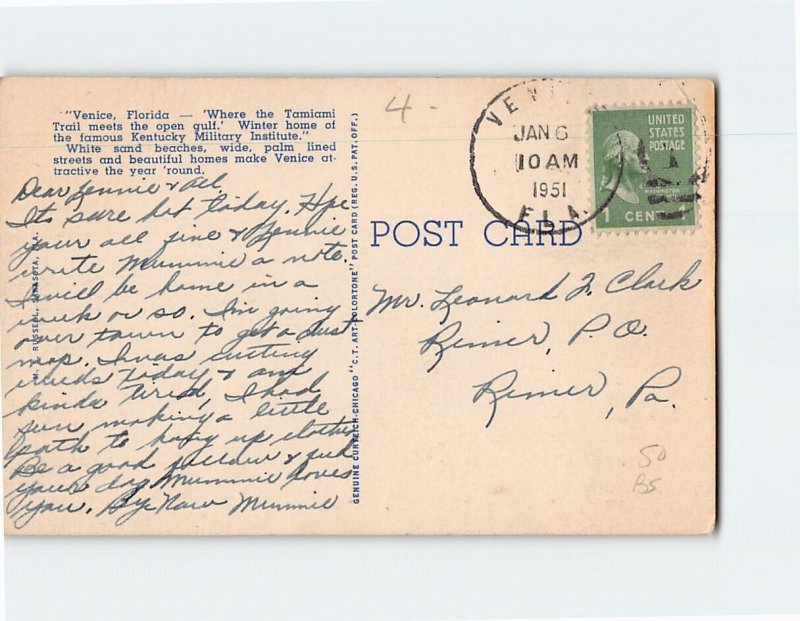 "Venice, Florida — 'Where the Tamiami
Trail meets the open gulf.' Winter home of
the famous Kentucky Military Institute."
White sand beaches, wide, palm lined
streets and beautiful homes make Venice at-
tractive the year 'round.
Dear Lennie & all,
Its sure hot today. Hope
your all fine & Lennie
write Mummie a note.
I will be home in a
week or so. I'm going
over town to get a dust
mop. I was cutting
weeds today & am
kinda tired, I had
fun making a little
path to hang up clothes
Be a good fellow &
your dog Mummie loves
you. By Now Mummie
RUSSELL, SARASOTA, FLA.
GENUINE CURTEICH-CHICAGO "C.T. ART-COLORTONE" POST CARD (REG. U.S. PAT. OFF.)
4 -
VENI
JAN 6
10 AM
1951
FLA.
UNITED
STATES
POSTAGE
WASHINGTON
1 CENT
POST CARD
Mr. Leonard F. Clark
Rimer, P.O.
Rimer, Pa.
50